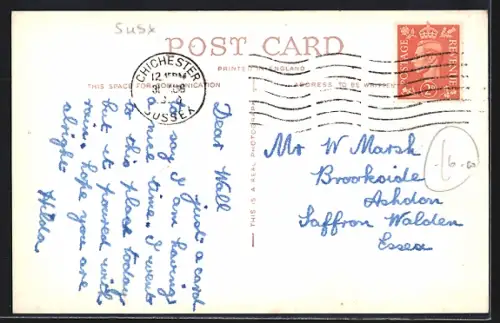 SUSX
POST CARD
PRINTED IN ENGLAND
THIS SPACE FOR COMMUNICATION
ADDRESS TO BE WRITTEN
CHICHESTER
12
SUSSEX
POSTAGE
REVENUE
THIS IS A REAL PHOTOGRAPH
Dear Wall
just a card
to say I am having
a nice time. I went
to this place today
but it poured with
rain. hope you are
alright
Hilda
Mr W Marsh
Brookside
Ashdon
Saffron Walden
Essex